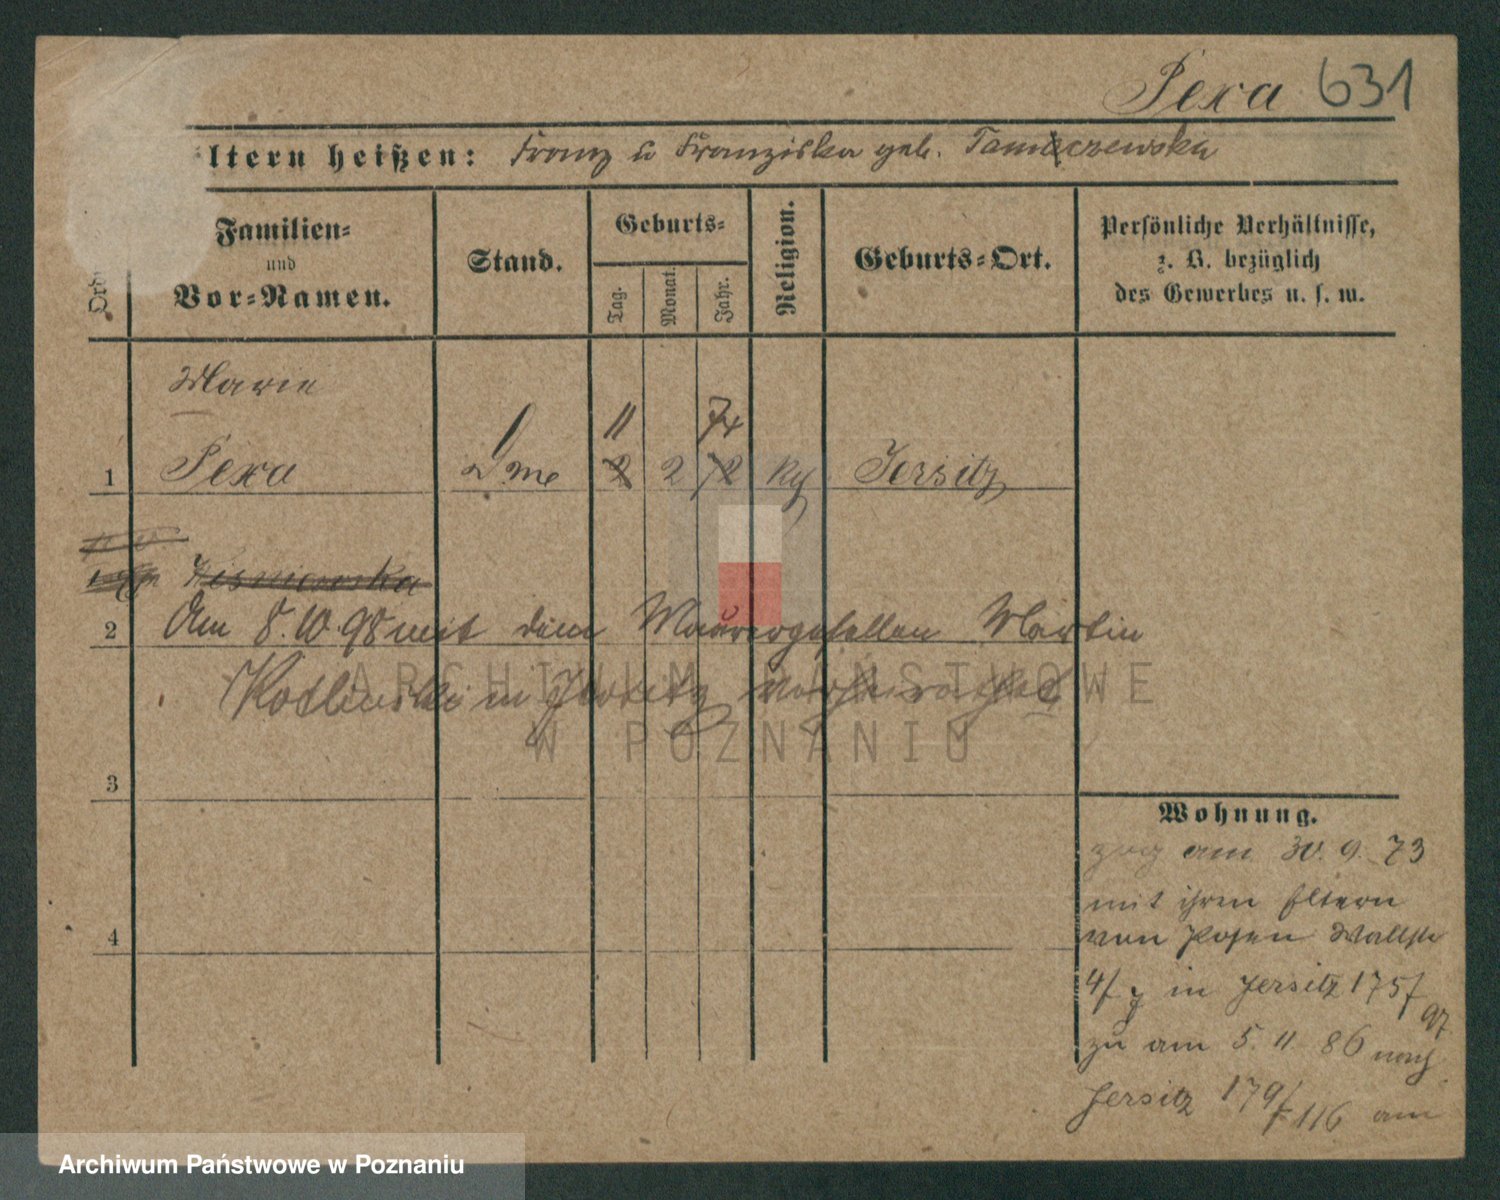 Pexa 631
ltern heißen: Franz u Franziska geb. Tamaczewska
Familien-
und
Vor-Namen.
Stand.
Geburts-
Tag.
Monat.
Jahr.
Religion.
Geburts-Ort.
Persönliche Verhältnisse,
z. B. bezüglich
des Gewerbes u. s. w.
Ord
Marie
11 74
1 Pexa 2 2 72 Jersitz
Wisniewska
2 Am 8.10.98 mit dem Maurergesellen Martin
Kotlinski in Jersitz verheirathet
ARCHIWUM PAŃSTWOWE
W POZNANIU
3
Wohnung.
zog am 30. 9. 73
mit ihren Eltern
4 von Posen Wallstr
4/ in Jersitz 175/
97
zu am 5. 11. 86 nach
Jersitz 179/ 116 am
Archiwum Państwowe w Poznaniu